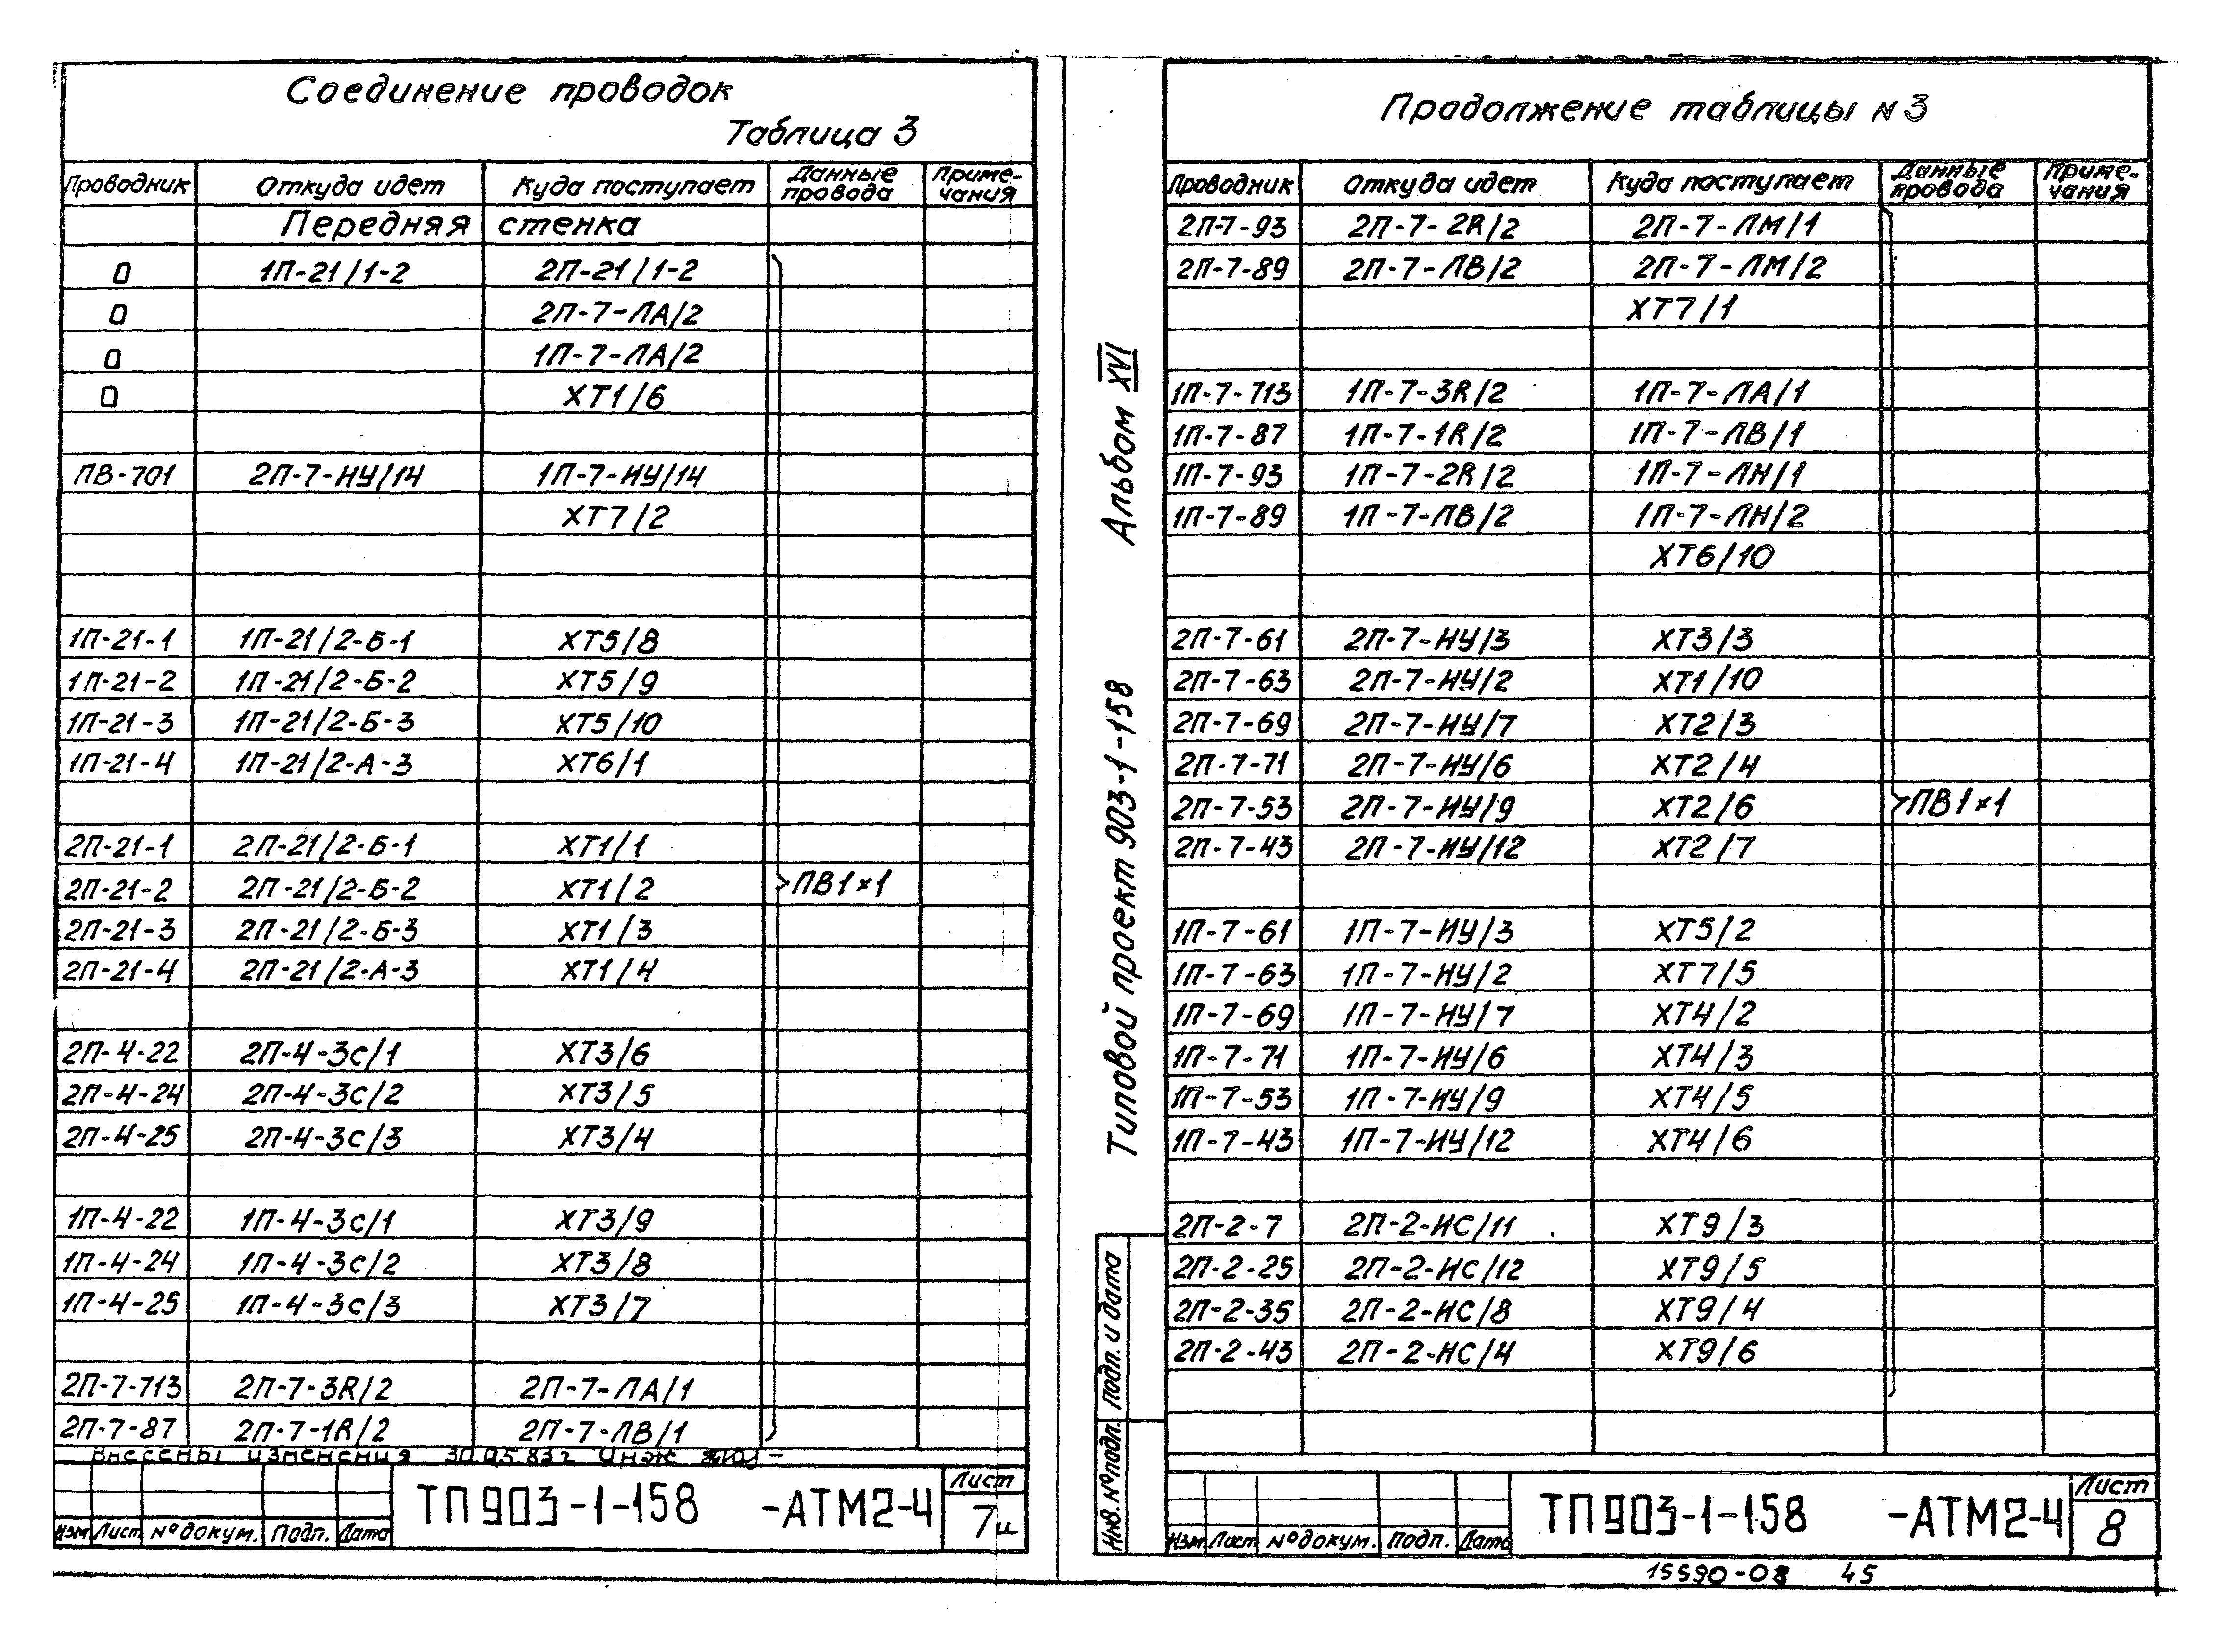 Соединение проводок
Таблица 3
Проводник Откуда идет Куда поступает Данные провода Примечания
Передняя стенка
0 1П-21/1-2 2П-21/1-2
0 2П-7-ЛА/2
0 1П-7-ЛА/2
0 ХТ1/6
ЛВ-701 2П-7-ИУ/14 1П-7-ИУ/14
ХТ7/2
1П-21-1 1П-21/2-Б-1 ХТ5/8
1П-21-2 1П-21/2-Б-2 ХТ5/9
1П-21-3 1П-21/2-Б-3 ХТ5/10
1П-21-4 1П-21/2-А-3 ХТ6/1
2П-21-1 2П-21/2-Б-1 ХТ1/1
2П-21-2 2П-21/2-Б-2 ХТ1/2 ПВ1×1
2П-21-3 2П-21/2-Б-3 ХТ1/3
2П-21-4 2П-21/2-А-3 ХТ1/4
2П-4-22 2П-4-3С/1 ХТ3/6
2П-4-24 2П-4-3С/2 ХТ3/5
2П-4-25 2П-4-3С/3 ХТ3/4
1П-4-22 1П-4-3С/1 ХТ3/9
1П-4-24 1П-4-3С/2 ХТ3/8
1П-4-25 1П-4-3С/3 ХТ3/7
2П-7-713 2П-7-3R/2 2П-7-ЛА/1
2П-7-87 2П-7-1R/2 2П-7-ЛВ/1
Внесены изменения 30.05.83г Инж
Изм Лист № докум. Подп. Дата
ТП 903-1-158 -АТМ2-4
Лист
7и
Альбом XVI
Типовой проект 903-1-158
Подп. и дата
Инв. № подл.
Продолжение таблицы N 3
Проводник Откуда идет Куда поступает Данные провода Примечания
2П-7-93 2П-7-2R/2 2П-7-ЛМ/1
2П-7-89 2П-7-ЛВ/2 2П-7-ЛМ/2
ХТ7/1
1П-7-713 1П-7-3R/2 1П-7-ЛА/1
1П-7-87 1П-7-1R/2 1П-7-ЛВ/1
1П-7-93 1П-7-2R/2 1П-7-ЛН/1
1П-7-89 1П-7-ЛВ/2 1П-7-ЛН/2
ХТ6/10
2П-7-61 2П-7-ИУ/3 ХТ3/3
2П-7-63 2П-7-ИУ/2 ХТ1/10
2П-7-69 2П-7-ИУ/7 ХТ2/3
2П-7-71 2П-7-ИУ/6 ХТ2/4
2П-7-53 2П-7-ИУ/9 ХТ2/6 ПВ1×1
2П-7-43 2П-7-ИУ/12 ХТ2/7
1П-7-61 1П-7-ИУ/3 ХТ5/2
1П-7-63 1П-7-ИУ/2 ХТ7/5
1П-7-69 1П-7-ИУ/7 ХТ4/2
1П-7-71 1П-7-ИУ/6 ХТ4/3
1П-7-53 1П-7-ИУ/9 ХТ4/5
1П-7-43 1П-7-ИУ/12 ХТ4/6
2П-2-7 2П-2-ИС/11 ХТ9/3
2П-2-25 2П-2-ИС/12 ХТ9/5
2П-2-35 2П-2-ИС/8 ХТ9/4
2П-2-43 2П-2-ИС/4 ХТ9/6
Изм Лист № докум. Подп. Дата
ТП 903-1-158 -АТМ2-4
Лист
8
15590-08 45